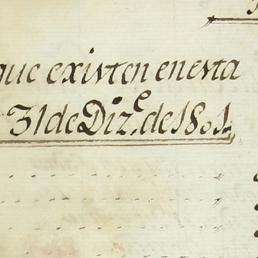 que existen en esta
31 de Diz.e de 1801